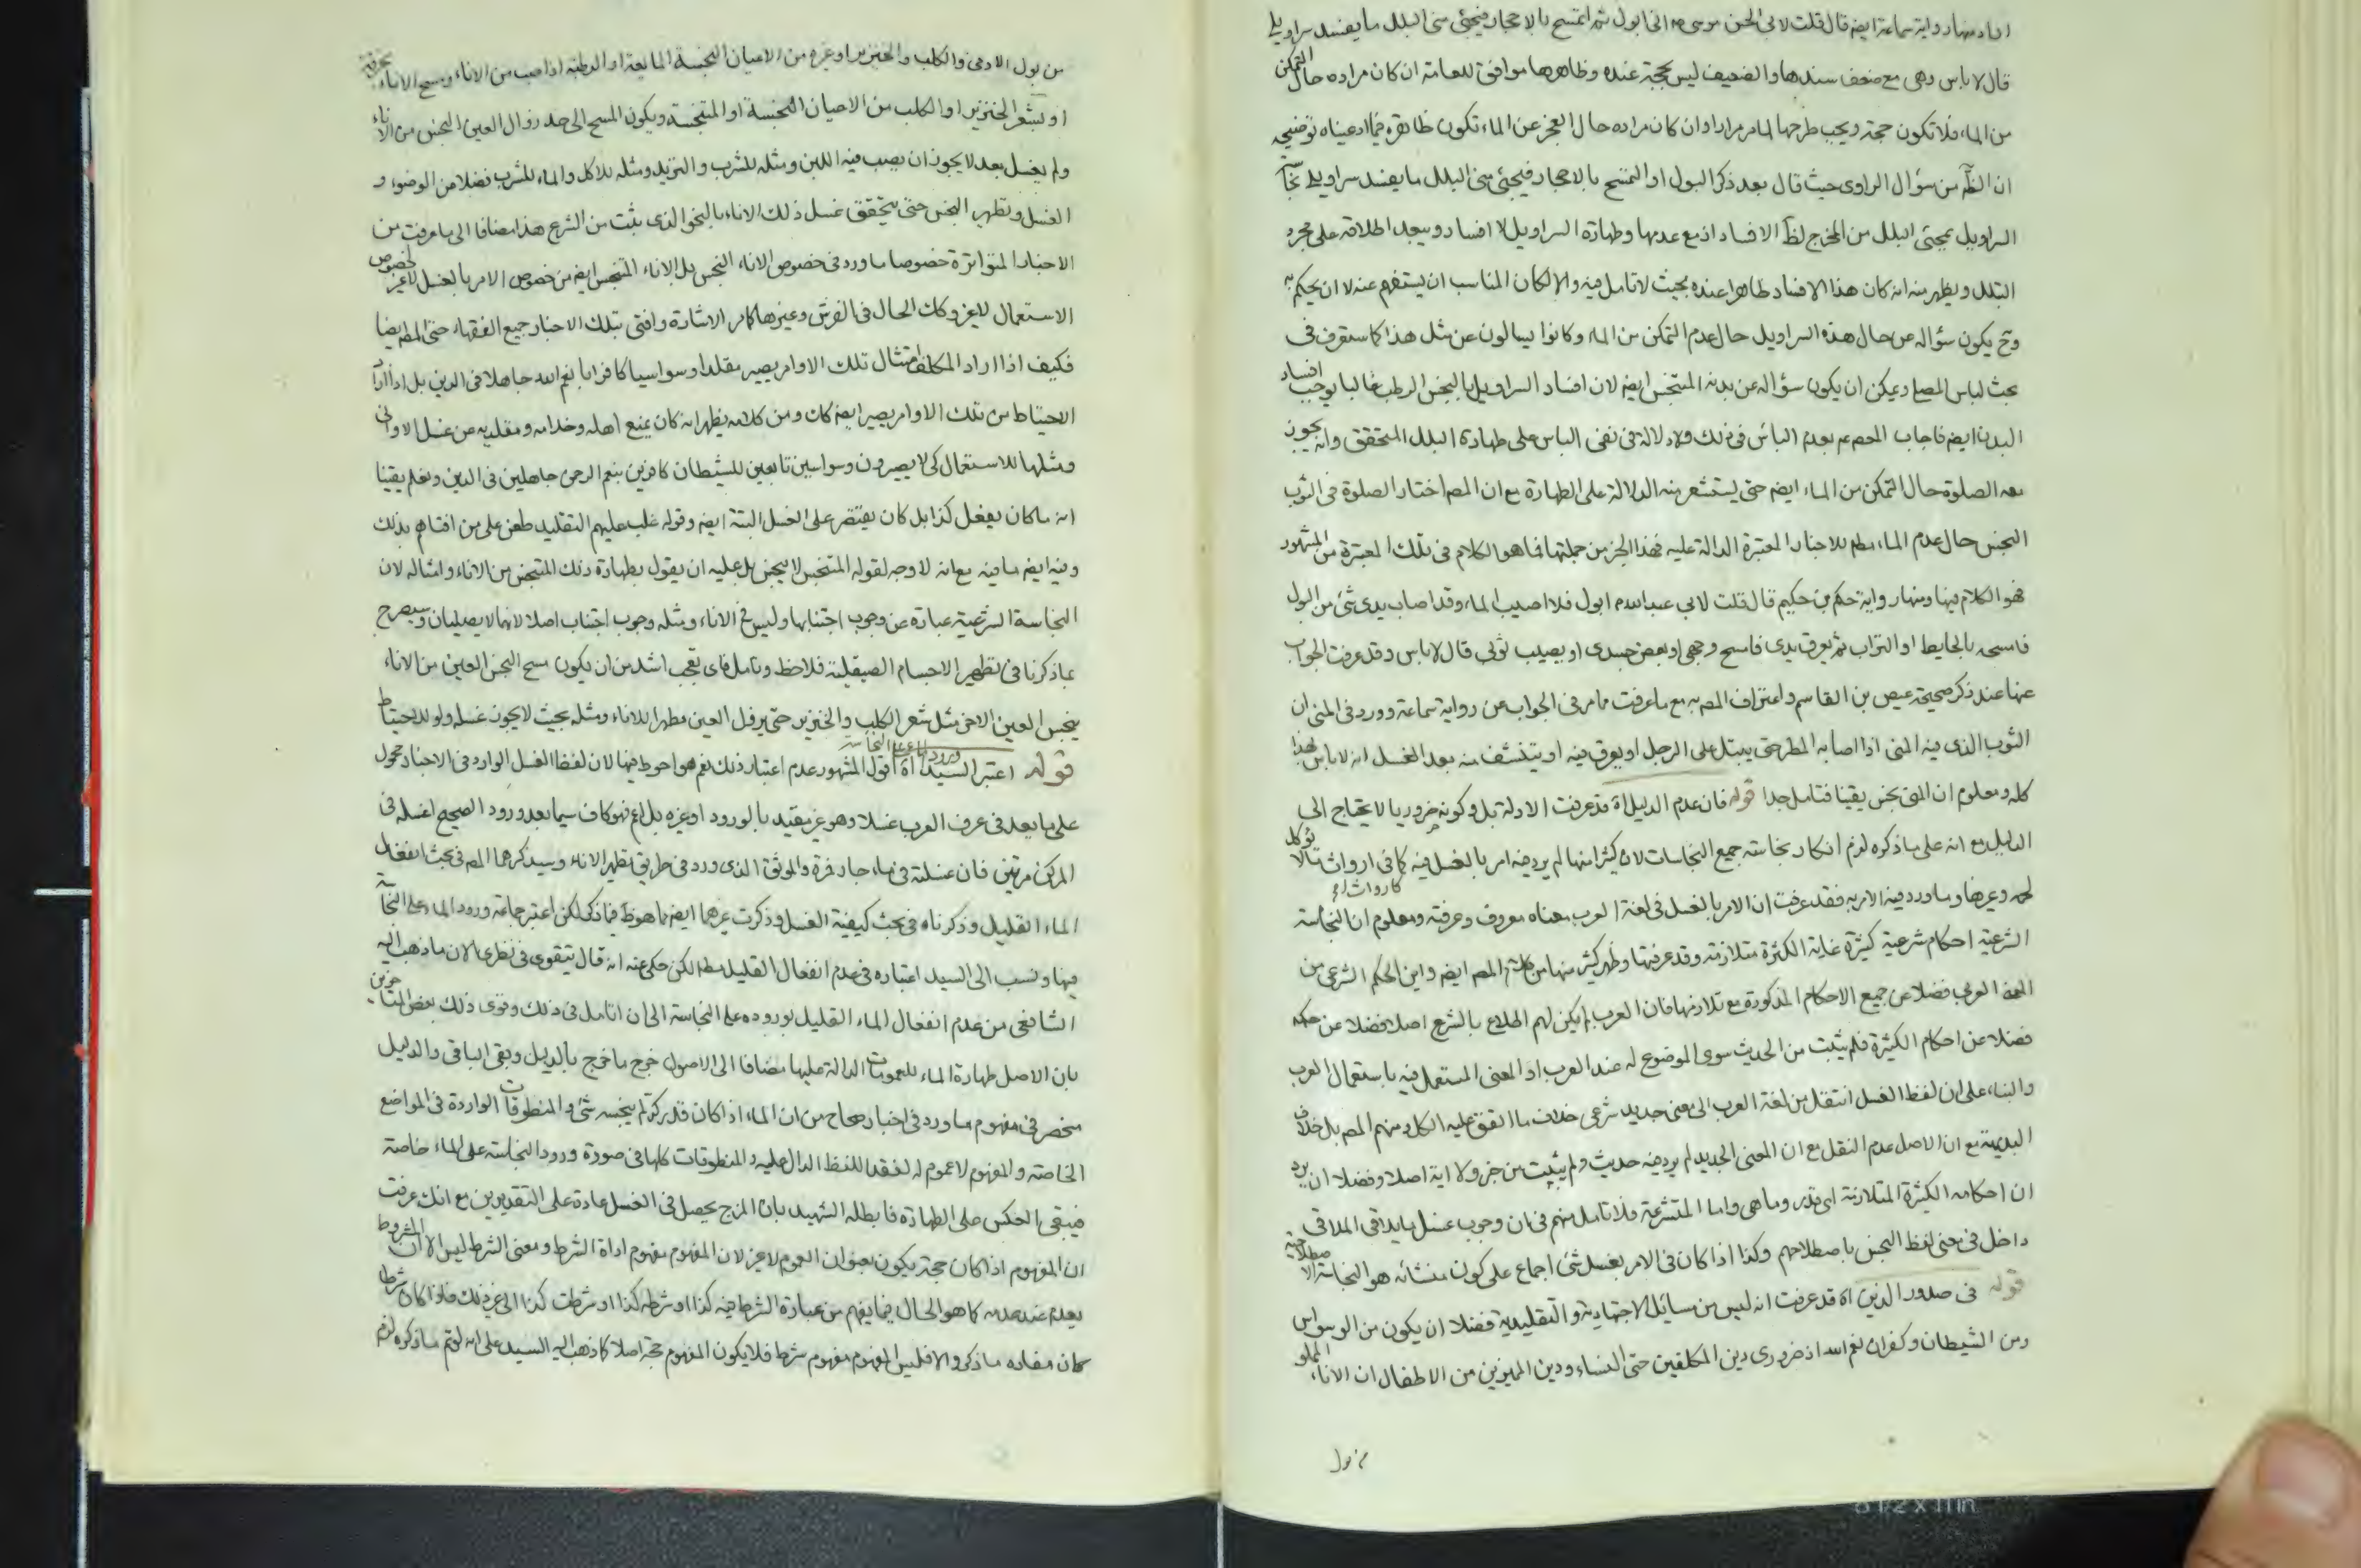 افاد منها رواية سماعة ايضم قال قلت لابى الحسن موسى ع انى ابول ثم اتمسح بالاحجار فيجئى منى البلل ما يفسد سراويلى
قال لا باس وهى مع ضعف سندها والضعيف ليس بحجة عنده وظاهرها موافق للعامة ان كان مراده حال التمكن
من الماء فلا تكون حجة ويجب طرحها لما مر مرارا وان كان مراده حال العجز عن الماء تكون ظاهرة فيما ادعيناه توضيحه
ان الظآ من سؤال الراوى حيث قال بعد ذكر البول او التمسح بالاحجار فيجئى منى البلل ما يفسد سراويلى
السراويل بمجئى البلل من المخرج لظآ الافساد اذ مع عدمها وطهارة السراويل لا افساد ويبعد اطلاقه على مجرد
البلل ويظهر منه انه كان هذا الافساد ظاهرا عنده بحيث لا تامل فيه والا لكان المناسب ان يستفهم عنه لا ان يحكم به
وح يكون سؤاله عن حال هذه السراويل حال عدم التمكن من الماء وكانوا يسالون عن مثل هذا كما ستعرف فى
بحث لباس المصلى ويمكن ان يكون سؤاله عن بدنه المتنجس ايضم لان افساد السراويل بالنجس الرطب غالبا يوجب افساد
البدن ايضم فاجاب المعصوم بعدم الباس فى ذلك ولا دلالة فى نفى الباس على طهارة البلل المتحقق وانه يجوز
معه الصلوة حال التمكن من الماء ايضم حتى يستشعر منه الدلالة على الطهارة مع ان المصم اختار الصلوة فى الثوب
النجس حال عدم الماء مطم للاخبار المعتبرة الدالة عليه فهذا الخبر من جملتها فما هو الكلام فى تلك المعتبرة من المشهور
فهو الكلام فيها ومنها رواية حكم بن حكيم قال قلت لابى عبد الله ع ابول فلا اصيب الماء وقد اصاب يدى شئ من البول
فامسحه بالحايط او التراب ثم يعرق يدى فامسح وجهى او بعض جسدى او يصيب ثوبى قال لا باس وقد عرفت الجواب
عنها عند ذكر صحيحة عيص بن القاسم واعتراف المصم به مع ما عرفت مما مر فى الجواب عن رواية سماعة وورد فى المنى ان
الثوب الذى فيه المنى اذا اصابه المطر حتى يبتل على الرجل او يعرق فيه او يتنشف منه بعد الغسل انه لا باس بهذا
كله ومعلوم ان المنى نجس يقينا فتامل جدا قوله فان عدم الدليل اه قد عرفت الادلة بل وكونه ضروريا لا يحتاج الى
الدليل مع انه على ما ذكره لزم انكار نجاسة جميع النجاسات لان كثيرا منها لم يرد فيه امر بالغسل فيه كما فى ارواث ما لا يؤكل
لحمه وغيرها وما ورد فيه الامر به فقد عرفت ان الامر بالغسل فى لغة العرب معناه معروف وعرفته ومعلوم ان النجاسة
الشرعية احكام شرعية كثيرة غاية الكثرة متلازمة وقد عرفتها وظهر كثير منها من كلام المصم ايضم واين الحكم الشرعى من
اللغة العربى فضلا عن جميع الاحكام المذكورة مع تلازمها فان العرب لم يكن لهم اطلاع بالشرع اصلا فضلا عن حكمه
فضلا عن احكام الكثيرة فلم يثبت من الحديث سوى الموضوع له عند العرب اذ المعنى المستعمل فيه باستعمال العرب
والبناء على ان لفظ الغسل انتقل من لغة العرب الى معنى جديد شرعى خلاف ما اتفق عليه الكل ومنهم المصم بل خلاف
البديهة مع ان الاصل عدم النقل مع ان المعنى الجديد لم يرد فيه حديث ولم يثبت من خبر ولا اية اصلا وفضلا ان يرد
ان احكامه الكثيرة المتلازمة اى قدر وما هى واما المتشرعة فلا تامل منهم فى ان وجوب غسل ما يلاقى الملاقى
داخل فى معنى لفظ النجس باصطلاحهم وكذا اذا كان فى الامر بغسل شئ اجماع على كون منشائه هو النجاسة الاصطلاحية
قوله فى صدور الذين اه قد عرفت انه ليس من مسائل الاجتهادية والتقليدية فضلا ان يكون من الوسواس
ومن الشيطان وكفران نعم الله اذ ضرورى دين المكلفين حتى النساء ودين المميزين من الاطفال ان الاناء المملو
من بول
من بول الادمى والكلب والخنزير او غيره من الاعيان النجسة المايعة او الرطبة اذا صب من الاناء ومسح الاناء بخرقة
او بشعر الخنزير او الكلب من الاعيان النجسة او المتنجسة ويكون المسح الى حد زوال العين النجس من الاناء
ولم يغسل بعد لا يجوز ان يصب فيه اللبن ومثله للشرب والثريد ومثله للاكل والماء للشرب فضلا من الوضوء و
الغسل وتطهير النجس حتى يتحقق غسل ذلك الاناء بالنحو الذى يثبت من الشرع هذا مضافا الى ما عرفت من
الاخبار المتواترة خصوصا ما ورد فى خصوص الاناء النجس بل الاناء المتنجس ايضم من خصوص الامر بالغسل لا غير لخصوص
الاستعمال لا غير وكان الحال فى الفرش وغيرها كما مر الاشارة وافتى بتلك الاخبار جميع الفقهاء حتى المصم ايضا
فكيف اذا اراد المكلف امتثال تلك الاوامر يصير مقلدا وسواسيا كافرا بانعم الله جاهلا فى الدين بل اذا اراد
الاحتياط من تلك الاوامر يصير ايضم كان ومن كلامه يظهر انه كان يمنع اهله وخدامه ومقلديه من غسل الاوانى
ومثلها للاستعمال كى لا يصيرون وسواسيين تابعين للشيطان كافرين بنعم الرحمن جاهلين فى الدين ونعلم يقينا
انه ما كان يفعل كذا بل كان يقتصر على الغسل البتة ايضم وقوله غلب عليهم التقليد طعن على من افتاهم بذلك
وفيه ايضم ما فيه مع انه لا وجه لقوله المتنجس لا ينجس بل عليه ان يقول بطهارة ذلك المتنجس من الاناء وامثاله لان
النجاسة الشرعية عبارة عن وجوب اجتنابها وليس فى الاناء ومثله وجوب اجتناب اصلا لانهما لا يصليان وسيصرح
بما ذكرنا فى تطهير الاجسام الصيقلية فلاحظ وتامل فاى تعجب اشد من ان يكون مسح النجس العين من الاناء
ينجس العين الاخر مثل شعر الكلب والخنزير حتى يزول العين مطهرا للاناء ومثله بحيث لا يجوز غسله ولو للاحتياط
قوله اعتبر السيد اه ورود الماء على النجاسة اقول المشهور عدم اعتبار ذلك نعم هو احوط فيها لان لفظ الغسل الوارد فى الاخبار محمول
على ما يعد فى عرف العرب غسلا وهو غير مقيد بالورود او غيره بل اعم فهو كاف سيما بعد ورود الصحيح اغسله فى
المركن مرتين فان غسلته فى ماء جار فمرة والموثق الذى ورد فى طريق تطهير الاناء وسيذكرهما المصم فى بحث انفعال
الماء القليل وذكرناه فى بحث كيفية الغسل وذكرت غيرهما ايضم مما هو ظ فيما ذكر لكن اعتبر جماعة ورود الماء على النجاسة
فيها ونسب الى السيد اعتباره فى عدم انفعال القليل مطم لكن حكى عنه انه قال يتقوى فى نظرى الان ما ذهب اليه
الشافعى من عدم انفعال الماء القليل بوروده على النجاسة الى ان اتامل فى ذلك وقوى ذلك بعض المتاخرين
بان الاصل طهارة الماء للعمومات الدالة عليها مضافا الى الاصول خرج ما خرج بالدليل وبقى الباقى والدليل
منحصر فى مفهوم ما ورد فى اخبار صحاح من ان الماء اذا كان قدر كر لم ينجسه شئ والمنطوقات الواردة فى المواضع
الخاصة والمفهوم لا عموم له لفقد اللفظ الدال عليه والمنطوقات كلها فى صورة ورود النجاسة على الماء خاصة
فيبقى العكس على الطهارة فابطله الشهيد بان المزج يحصل فى الغسل عادة على التقديرين مع انك عرفت
ان المفهوم اذا كان حجة يكون بعنوان العموم لا غير لان المفهوم مفهوم اداة الشرط ومعنى الشرط ليس الا ان المشروط
يعدم عند عدمه كما هو الحال فيما يفهم من عبارة الشرط فيه كذا او شرطه كذا او شرطت كذا الى غير ذلك فاذا كان شرطا
كان مفاده ما ذكر والا فليس المفهوم مفهوم شرط فلا يكون المفهوم حجة اصلا كما ذهب اليه السيد على انه لو تم ما ذكره لزم